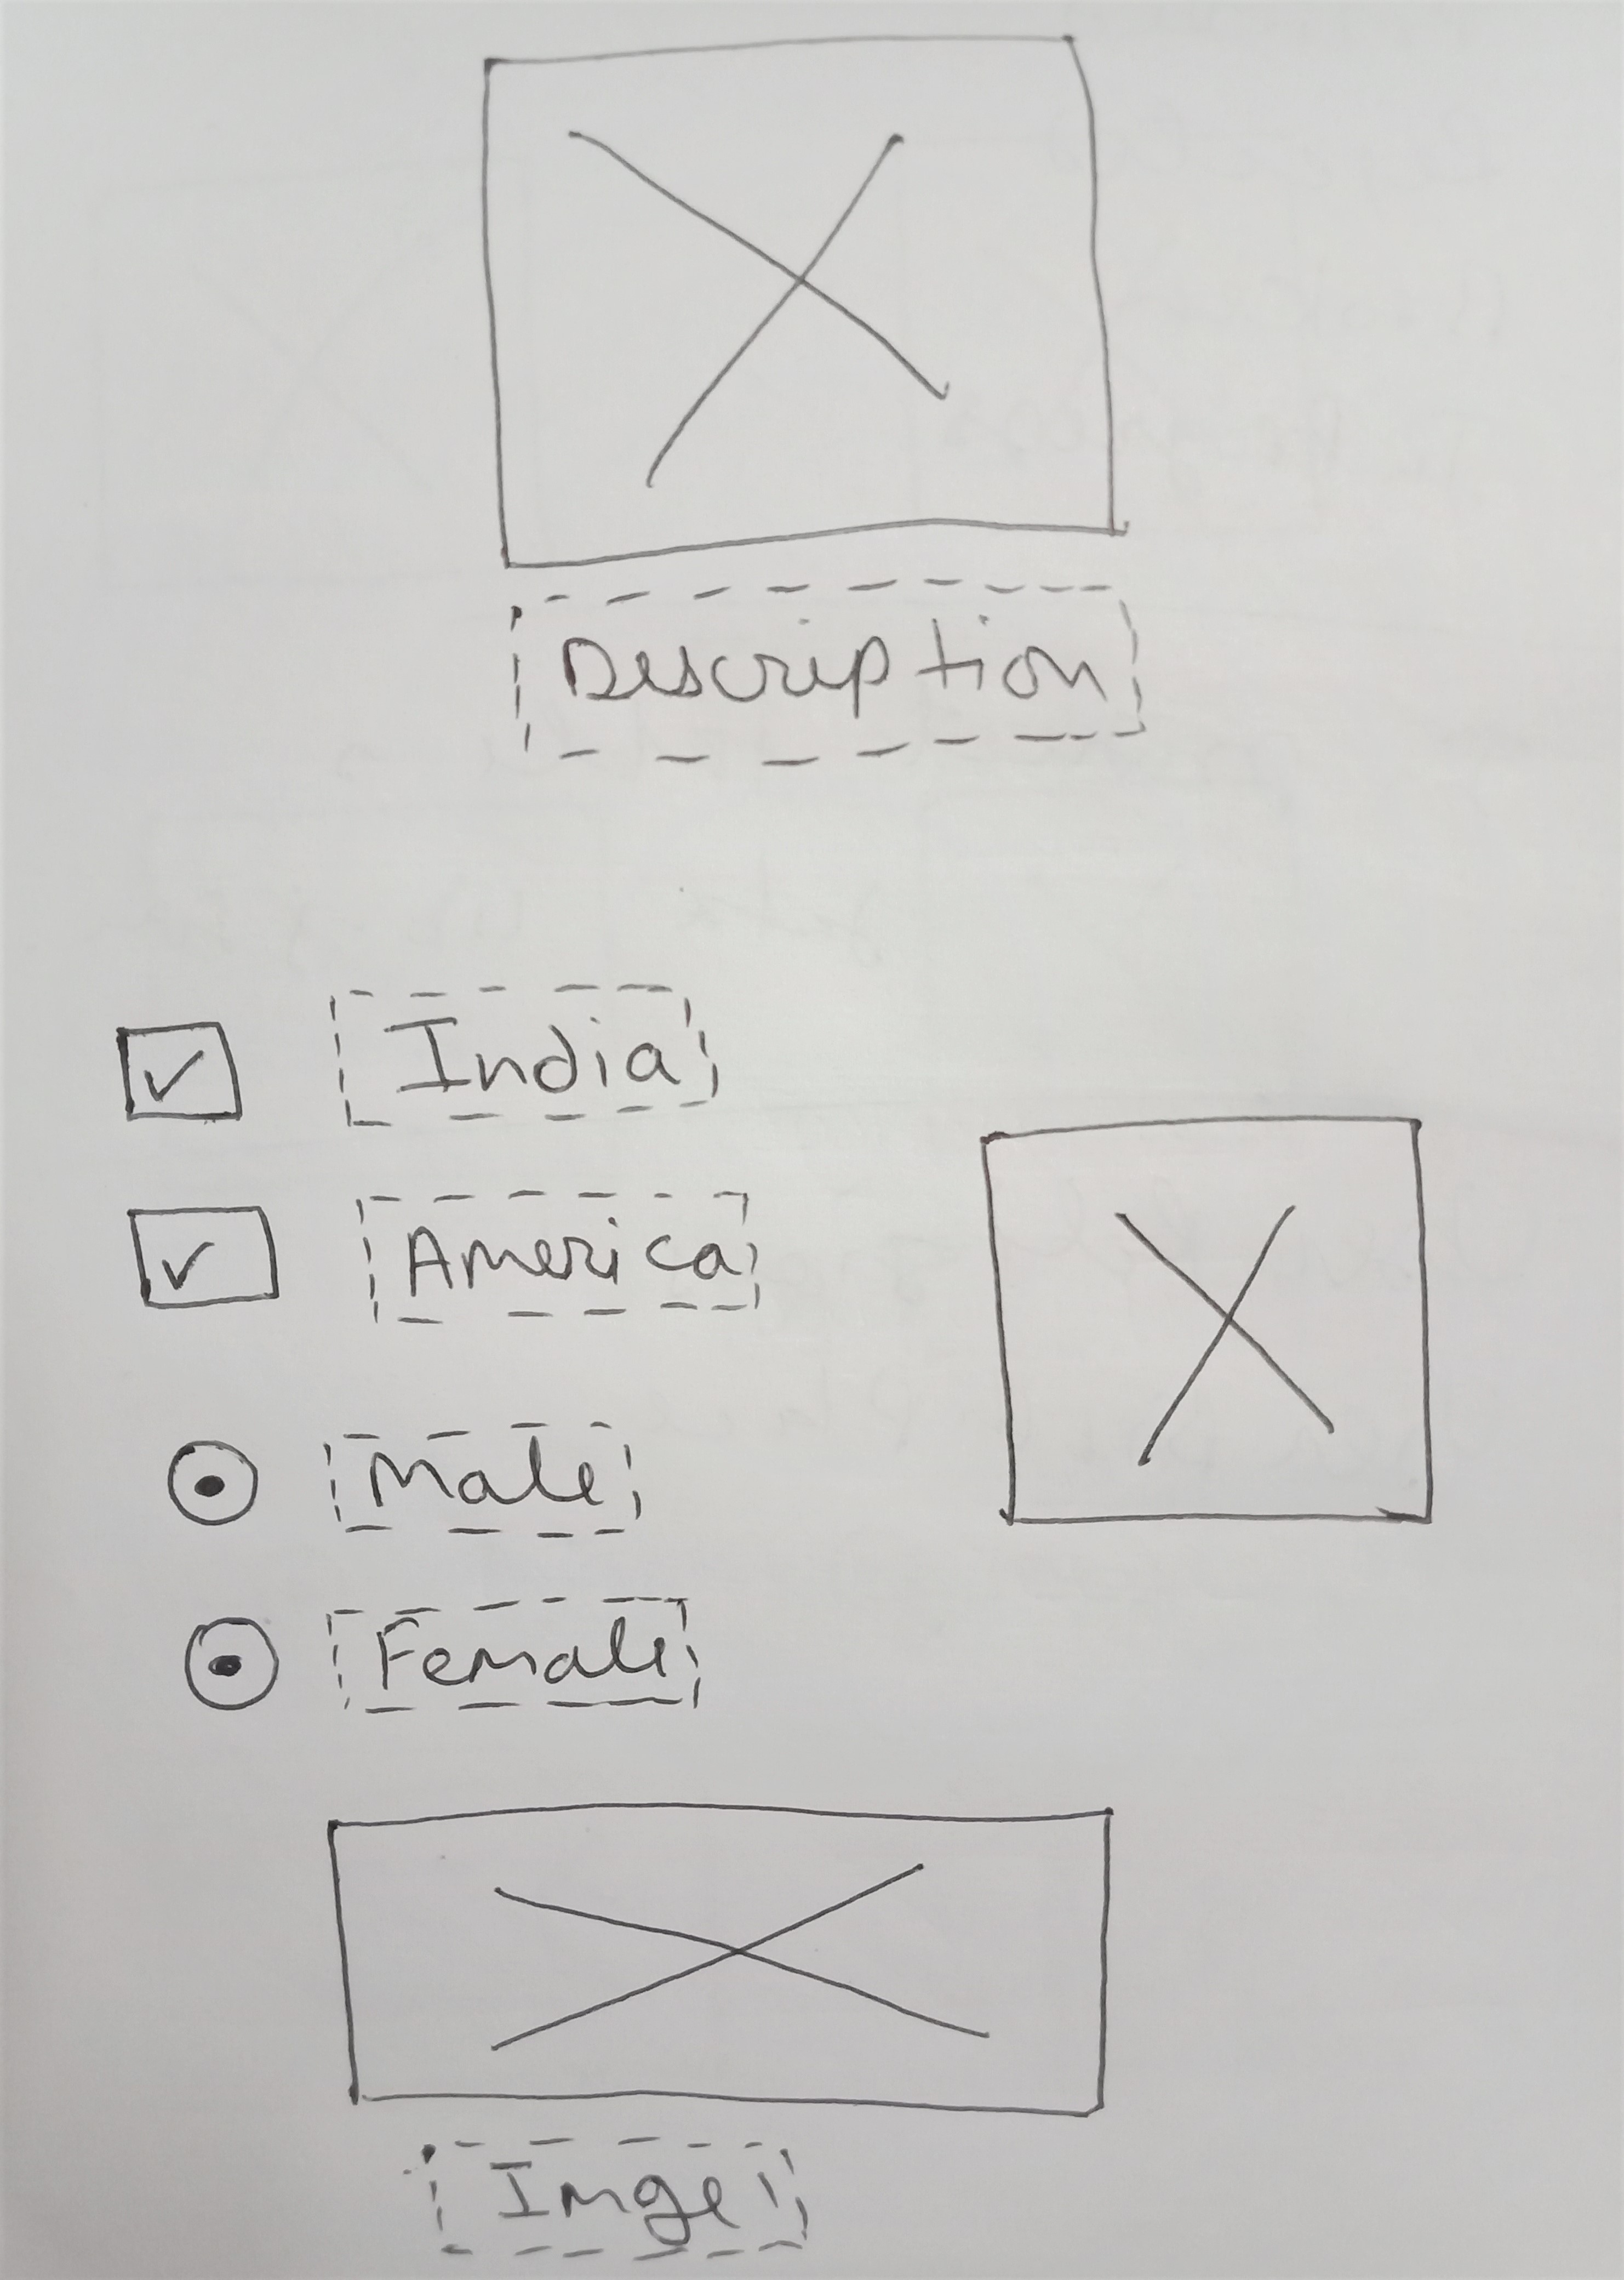 Description
India
America
Male
Female
Imge